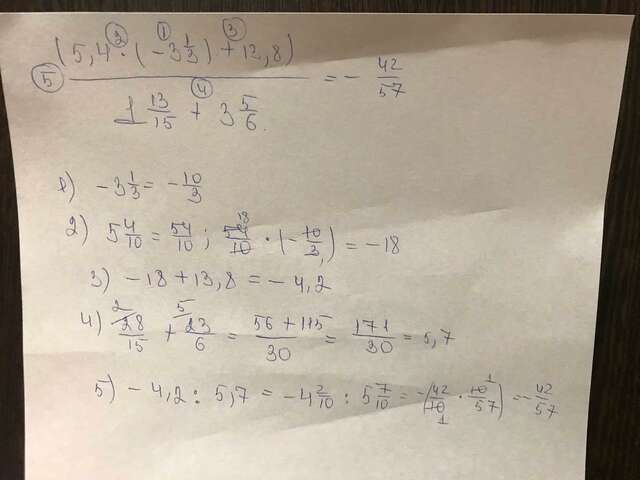 (5,4 · (-3 1/3) + 13,8) / (1 13/15 + 3 5/6) = - 42/57
② ① ③ ④ ⑤
1) -3 1/3 = -10/3
2) 5 4/10 = 54/10 ; 54/10 · (-10/3) = -18
3) -18 + 13,8 = -4,2
4) 28/15 + 23/6 = 56 + 115/30 = 171/30 = 5,7
5) -4,2 : 5,7 = -4 2/10 : 5 7/10 = -(42/10 · 10/57) = - 42/57